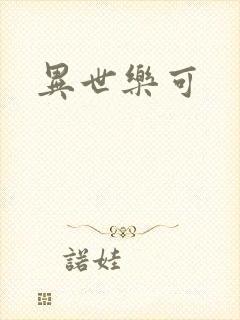 異世樂可
諾娃